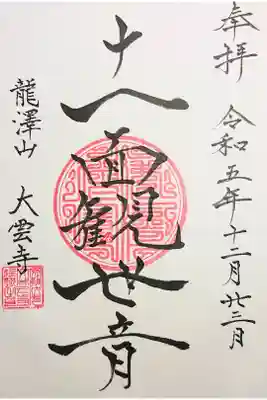 奉拝 令和五年十二月廿三月
十一面観世音
龍澤山 大雲寺